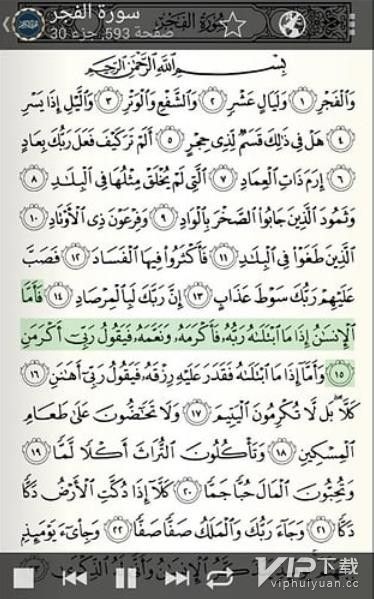 سورة الفجر
صفحة 593, جزء 30
بِسْمِ اللَّهِ الرَّحْمَٰنِ الرَّحِيمِ
وَالْفَجْرِ ١ وَلَيَالٍ عَشْرٍ ٢ وَالشَّفْعِ وَالْوَتْرِ ٣ وَاللَّيْلِ إِذَا يَسْرِ
٤ هَلْ فِي ذَٰلِكَ قَسَمٌ لِّذِي حِجْرٍ ٥ أَلَمْ تَرَ كَيْفَ فَعَلَ رَبُّكَ بِعَادٍ
٦ إِرَمَ ذَاتِ الْعِمَادِ ٧ الَّتِي لَمْ يُخْلَقْ مِثْلُهَا فِي الْبِلَادِ ٨
وَثَمُودَ الَّذِينَ جَابُوا الصَّخْرَ بِالْوَادِ ٩ وَفِرْعَوْنَ ذِي الْأَوْتَادِ ١٠
الَّذِينَ طَغَوْا فِي الْبِلَادِ ١١ فَأَكْثَرُوا فِيهَا الْفَسَادَ ١٢ فَصَبَّ
عَلَيْهِمْ رَبُّكَ سَوْطَ عَذَابٍ ١٣ إِنَّ رَبَّكَ لَبِالْمِرْصَادِ ١٤ فَأَمَّا
الْإِنسَٰنُ إِذَا مَا ابْتَلَىٰهُ رَبُّهُ فَأَكْرَمَهُ وَنَعَّمَهُ فَيَقُولُ رَبِّي أَكْرَمَنِ
١٥ وَأَمَّا إِذَا مَا ابْتَلَىٰهُ فَقَدَرَ عَلَيْهِ رِزْقَهُ فَيَقُولُ رَبِّي أَهَٰنَنِ ١٦
كَلَّا بَل لَّا تُكْرِمُونَ الْيَتِيمَ ١٧ وَلَا تَحَٰٓضُّونَ عَلَىٰ طَعَامِ
الْمِسْكِينِ ١٨ وَتَأْكُلُونَ التُّرَاثَ أَكْلًا لَّمًّا ١٩
وَتُحِبُّونَ الْمَالَ حُبًّا جَمًّا ٢٠ كَلَّا إِذَا دُكَّتِ الْأَرْضُ دَكًّا
دَكًّا ٢١ وَجَاءَ رَبُّكَ وَالْمَلَكُ صَفًّا صَفًّا ٢٢ وَجِا۟يٓءَ يَوْمَئِذٍ
VIP下载
viphuiyuan.cc